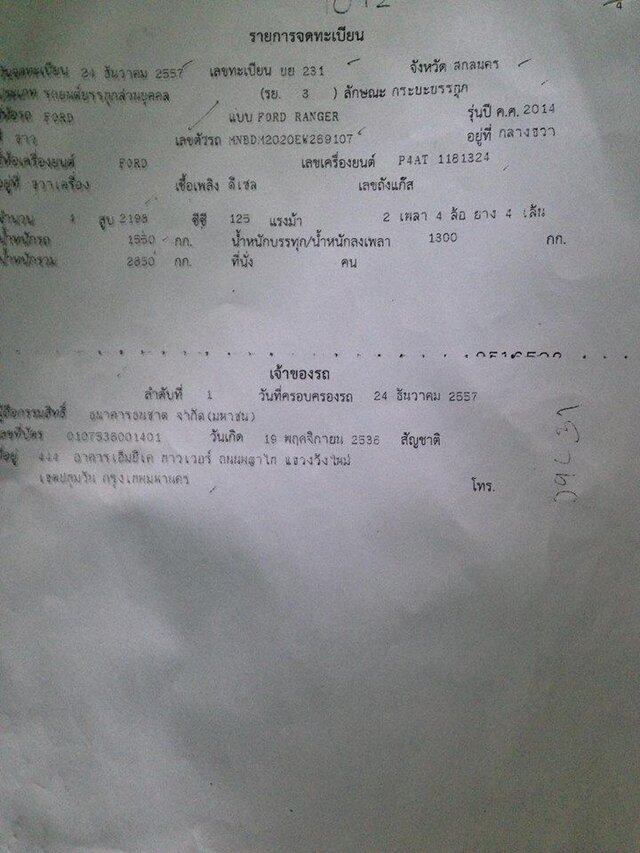 รายการจดทะเบียน
วันจดทะเบียน 24 ธันวาคม 2557 เลขทะเบียน ยย 231 จังหวัด สกลนคร
ประเภท รถยนต์บรรทุกส่วนบุคคล (รย. 3 ) ลักษณะ กระบะบรรทุก
FORD แบบ FORD RANGER รุ่นปี ค.ศ. 2014
สี ขาว เลขตัวรถ MNBDM2020EW269107 อยู่ที่ กลางขวา
ยี่ห้อเครื่องยนต์ FORD เลขเครื่องยนต์ P4AT 1181324
อยู่ที่ ขวาเครื่อง เชื้อเพลิง ดีเซล เลขถังแก๊ส
จำนวน 4 สูบ 2198 ซีซี 125 แรงม้า 2 เพลา 4 ล้อ ยาง 4 เส้น
น้ำหนักรถ 1550 กก. น้ำหนักบรรทุก/น้ำหนักลงเพลา 1300 กก.
น้ำหนักรวม 2850 กก. ที่นั่ง คน
เจ้าของรถ
ลำดับที่ 1 วันที่ครอบครองรถ 24 ธันวาคม 2557
ผู้ถือกรรมสิทธิ์ ธนาคารธนชาต จำกัด(มหาชน)
เลขที่บัตร 0107536001401 วันเกิด 19 พฤศจิกายน 2536 สัญชาติ
ที่อยู่ 444 อาคารเอ็มบีเค ทาวเวอร์ ถนนพญาไท แขวงวังใหม่
เขตปทุมวัน กรุงเทพมหานคร
โทร.